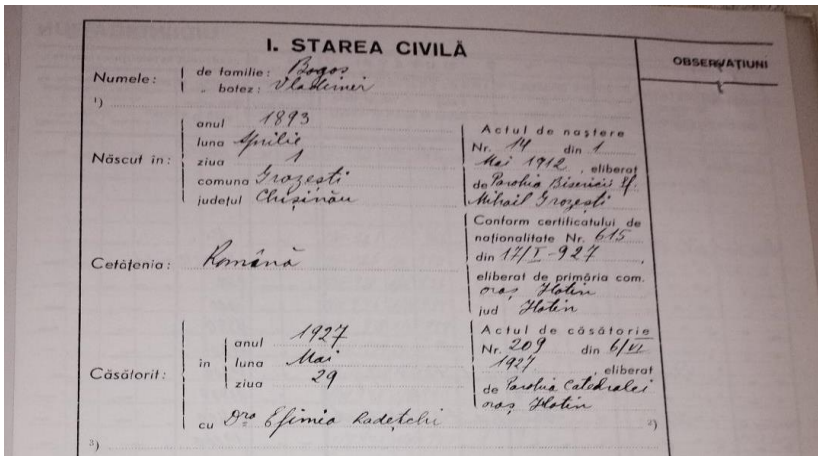 I. STAREA CIVILĂ
OBSERVAȚIUNI
Numele: de familie: Bogos
„ botez: Vladimir
1)
Născut în: anul 1893
luna Aprilie
ziua 1
comuna Grozești
județul Chișinău
Actul de naștere
Nr. 14 din 1
Mai 1912, eliberat
de Parohia Bisericii Sf.
Mihail Grozești
Cetățenia: Română
Conform certificatului de
naționalitate Nr. 615
din 17/I-927
eliberat de primăria com.
oraș Hotin
jud Hotin
Căsătorit: în anul 1927
luna Mai
ziua 29
Actul de căsătorie
Nr. 209 din 6/VI
1927, eliberat
de Parohia Catedralei
oraș Hotin
cu Dra Efimia Radețchi 2)
3)